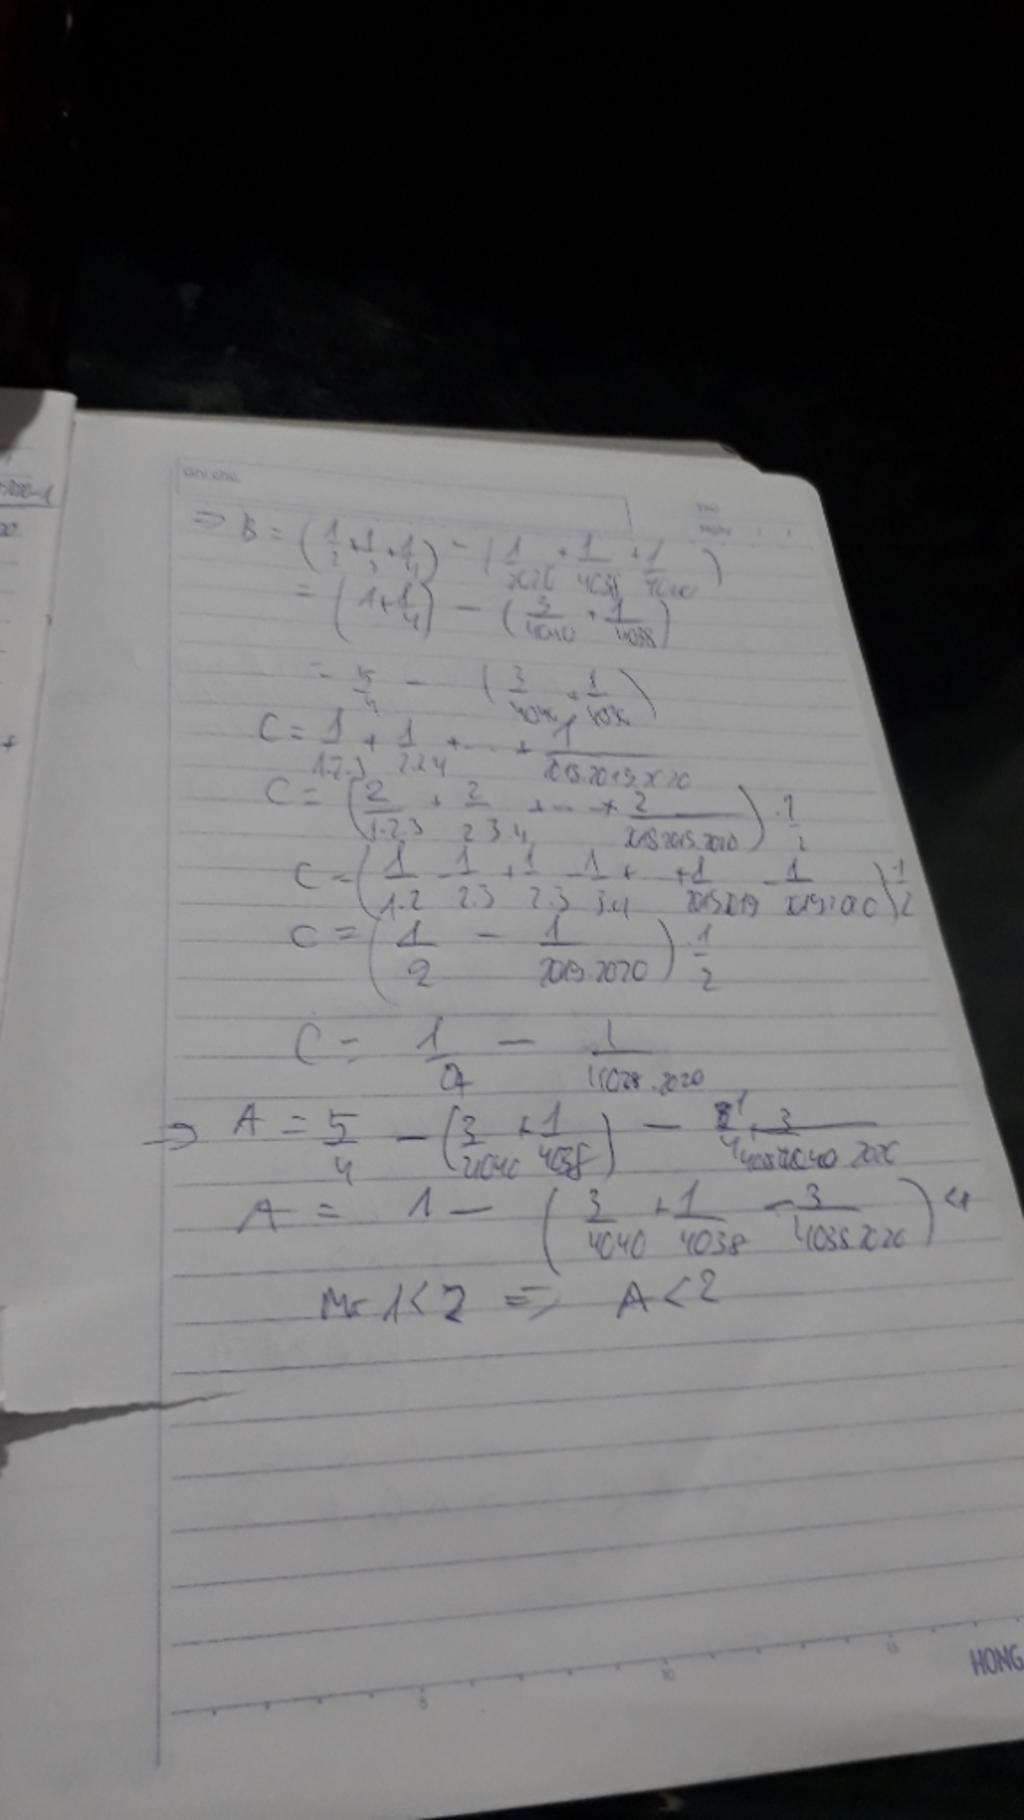 ⇒ B = (1/2 + 1/2 + 1/4) - (1/2020 + 1/4038 + 1/4040)
= (1 + 1/4) - (3/4040 + 1/4038)
= 5/4 - (3/4040 + 1/4038)
C = 1/1.2.3 + 1/2.3.4 + ... + 1/2018.2019.2020
C = (2/1.2.3 + 2/2.3.4 + ... + 2/2018.2019.2020) . 1/2
C = (1/1.2 - 1/2.3 + 1/2.3 - 1/3.4 + + 1/2018.2019 - 1/2019.2020) 1/2
C = (1/2 - 1/2019.2020) . 1/2
C = 1/4 - 1/4038.2020
⇒ A = 5/4 - (3/4040 + 1/4038) -
A = 1 - (3/4040 + 1/4038 - 3/4038.2020) < 1
Mà 1 < 2 ⇒ A < 2
5 10 15
HONG